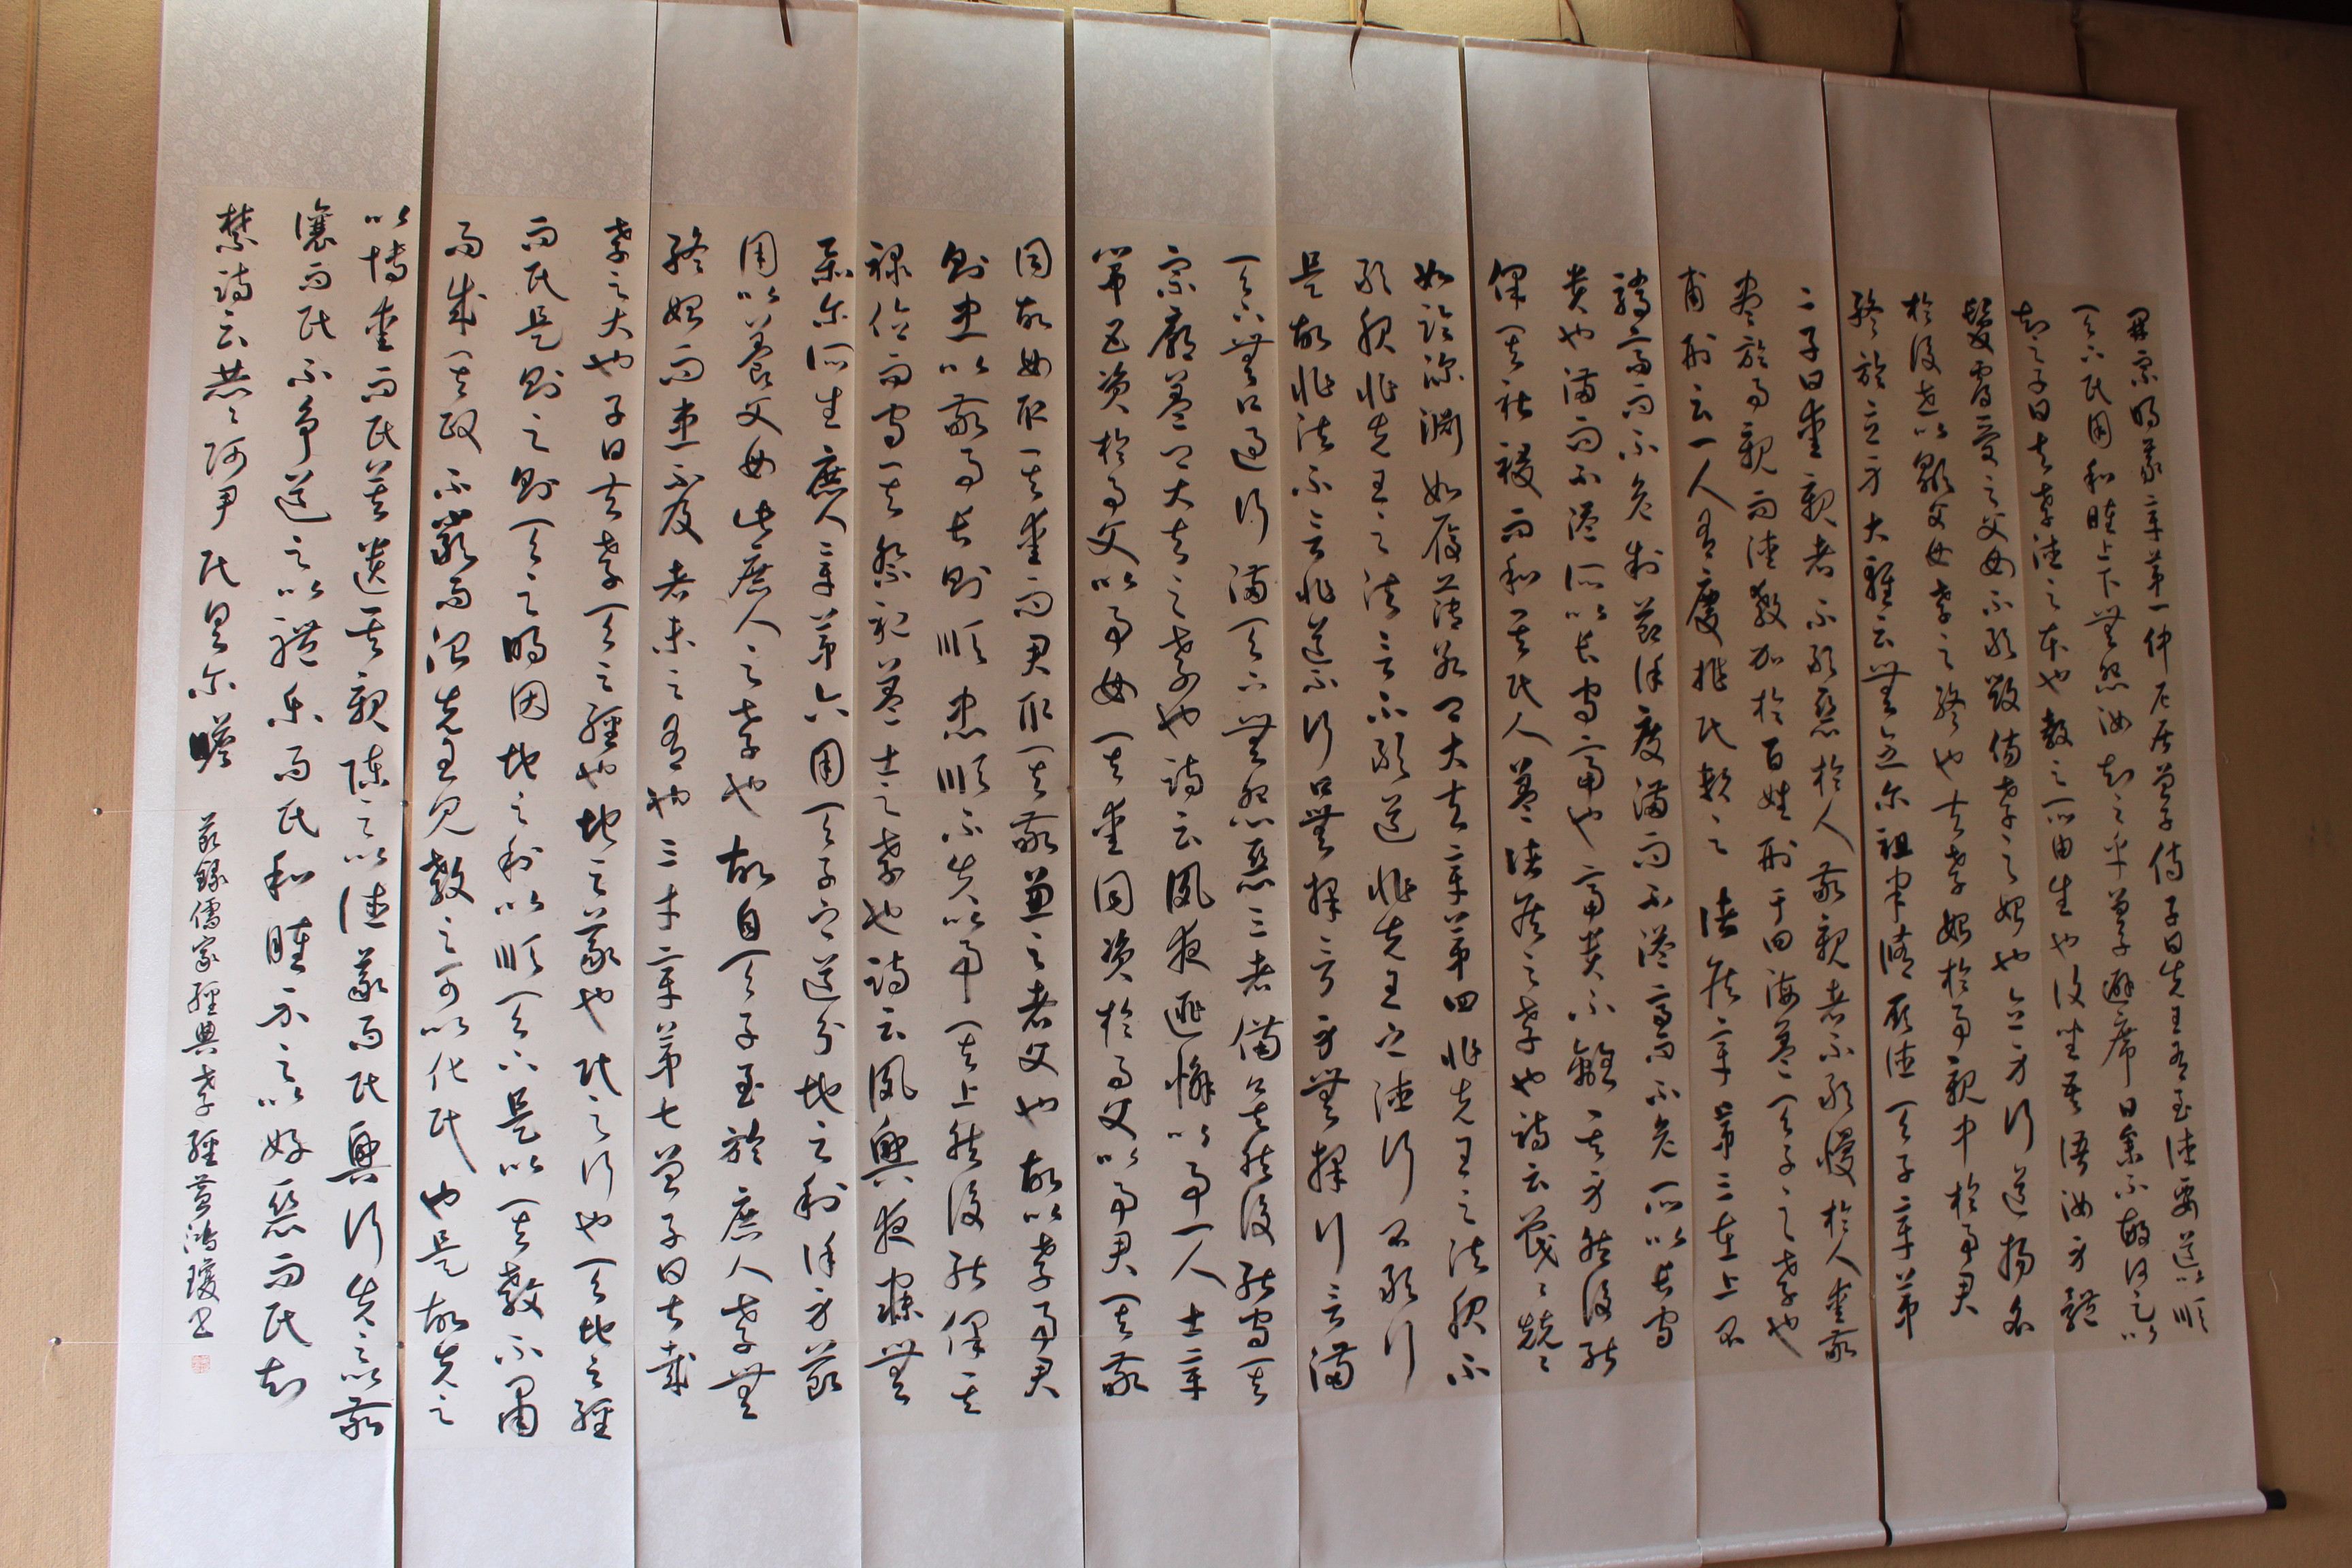 開宗明義章第一仲尼居曾子侍子曰先王有至德要道以順
天下民用和睦上下無怨汝知之乎曾子避席曰參不敏何足以
知之子曰夫孝德之本也教之所由生也復坐吾語汝身體
髮膚受之父母不敢毀傷孝之始也立身行道揚名
於後世以顯父母孝之終也夫孝始於事親中於事君
終於立身大雅云無念爾祖聿脩厥德天子章第
二子曰愛親者不敢惡於人敬親者不敢慢於人愛敬
盡於事親而德教加於百姓刑于四海蓋天子之孝也
甫刑云一人有慶兆民賴之諸侯章第三在上不
驕高而不危制節謹度滿而不溢高而不危所以長守
貴也滿而不溢所以長守富也富貴不離其身然後能
保其社稷而和其民人蓋諸侯之孝也詩云戰々兢々
如臨深淵如履薄冰卿大夫章第四非先王之法服不
敢服非先王之法言不敢道非先王之德行不敢行
是故非法不言非道不行口無擇言身無擇行言滿
天下無口過行滿天下無怨惡三者備矣然後能守其
宗廟蓋卿大夫之孝也詩云夙夜匪懈以事一人士章
第五資於事父以事母其愛同資於事父以事君其敬
同故母取其愛而君取其敬兼之者父也故以孝事君
則忠以敬事長則順忠順不失以事其上然後能保其
祿位而守其祭祀蓋士之孝也詩云夙興夜寐無
忝爾所生庶人章第六用天子之道分地之利謹身節
用以養父母此庶人之孝也故自天子至於庶人孝無
終始而患不及者未之有也三才章第七曾子曰甚哉
孝之大也子曰夫孝天之經也地之義也民之行也天地之經
而民是則之則天之明因地之利以順天下是以其教不肅
而成其政不嚴而治先王見教之可以化民也是故先之
以博愛而民莫遺其親陳之以德義而民興行先之以敬
讓而民不爭導之以禮樂而民和睦示之以好惡而民知
禁詩云赫々師尹民具爾瞻
敬錄儒家經典孝經黃鴻瓊書